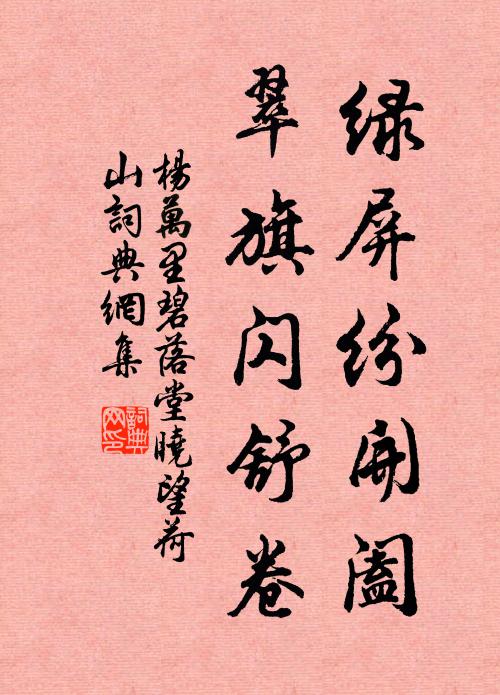 绿屏纷開阖
翠旗闪舒卷
楊萬里碧落堂曉望荷
山詞典網集
詞典
网印